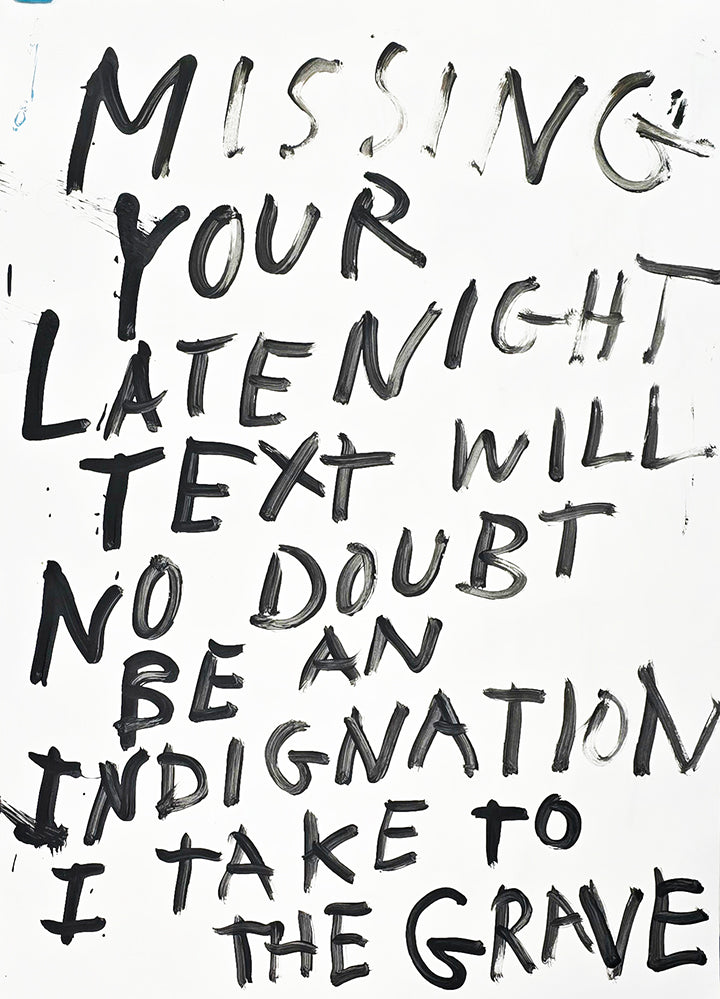 MISSING
YOUR
LATE NIGHT
TEXT WILL
NO DOUBT
BE AN
INDIGNATION
I TAKE TO
THE GRAVE